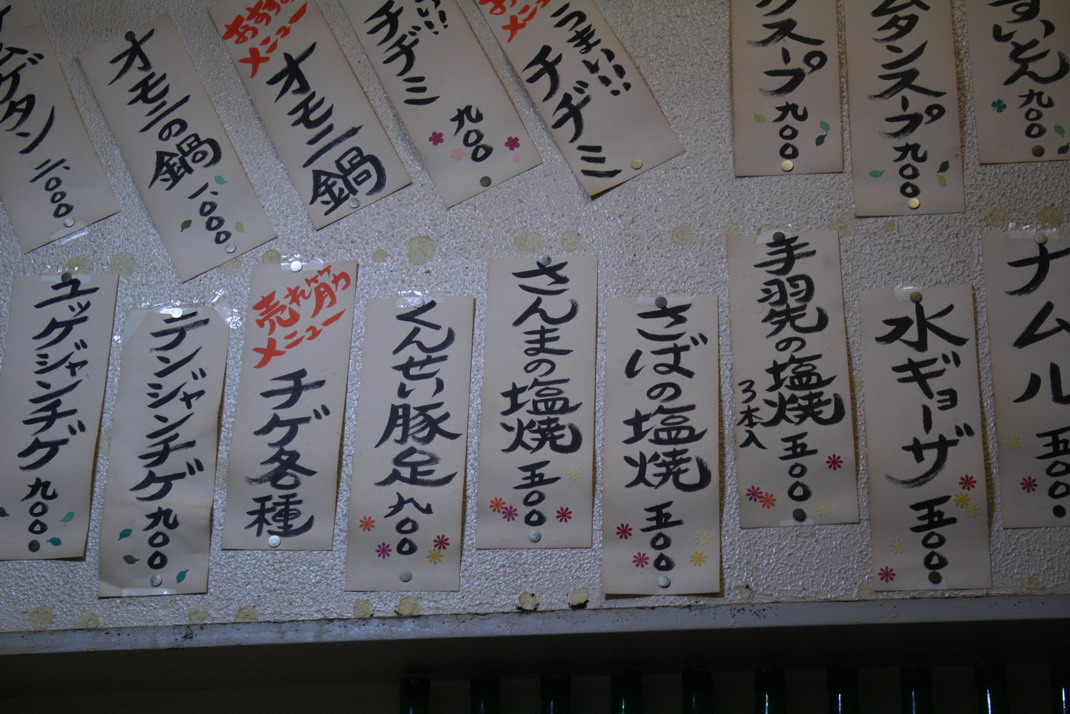 ムゲタン
二、〇〇〇
オモニの鍋
一、〇〇〇
おすすめ
メニュー
オモニ鍋
い!!
チヂミ
九〇〇
メニュー
うまい!!
チヂミ
クスープ
九〇〇
ムタンスープ
九〇〇
すいとん
九〇〇
ユッケジャンチゲ
九〇〇
テンジャンチゲ
九〇〇
売れ筋
メニュー
チゲ各種
くんせい豚足
九〇〇
さんまの塩焼
五〇〇
さばの塩焼
五〇〇
手羽先の塩焼
3本入
五〇〇
水ギョーザ
五〇〇
ナムル
五〇〇